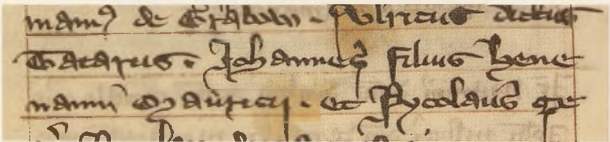 mannꝰ de Grabow . Ulricus dictus
Tatarus . Johannes filius hene
manni Mauricij . et Nycolaus ge